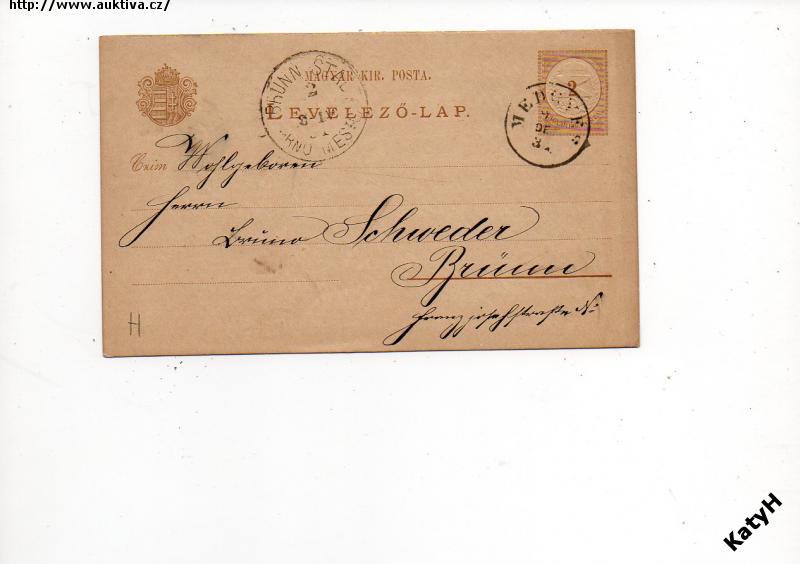 http://www.auktiva.cz/
MAGYAR KIR. POSTA.
LEVELEZŐ-LAP.
BRÜNN STADT
2
8 11
BRNO MĚSTO
2
MEDGYES
Wohlgeboren
Herrn
Bruno Schweder
Brünn
Franzjosefstraße N:
H
KatyH